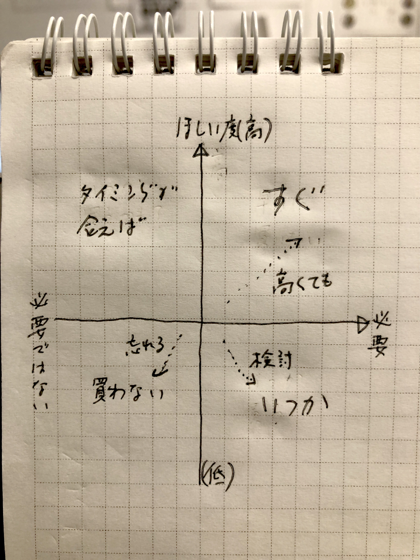 ほしい度(高)
タイミングが
合えば
すぐ
高くても
必要ではない
必要
忘れる
買わない
検討
いつか
(低)